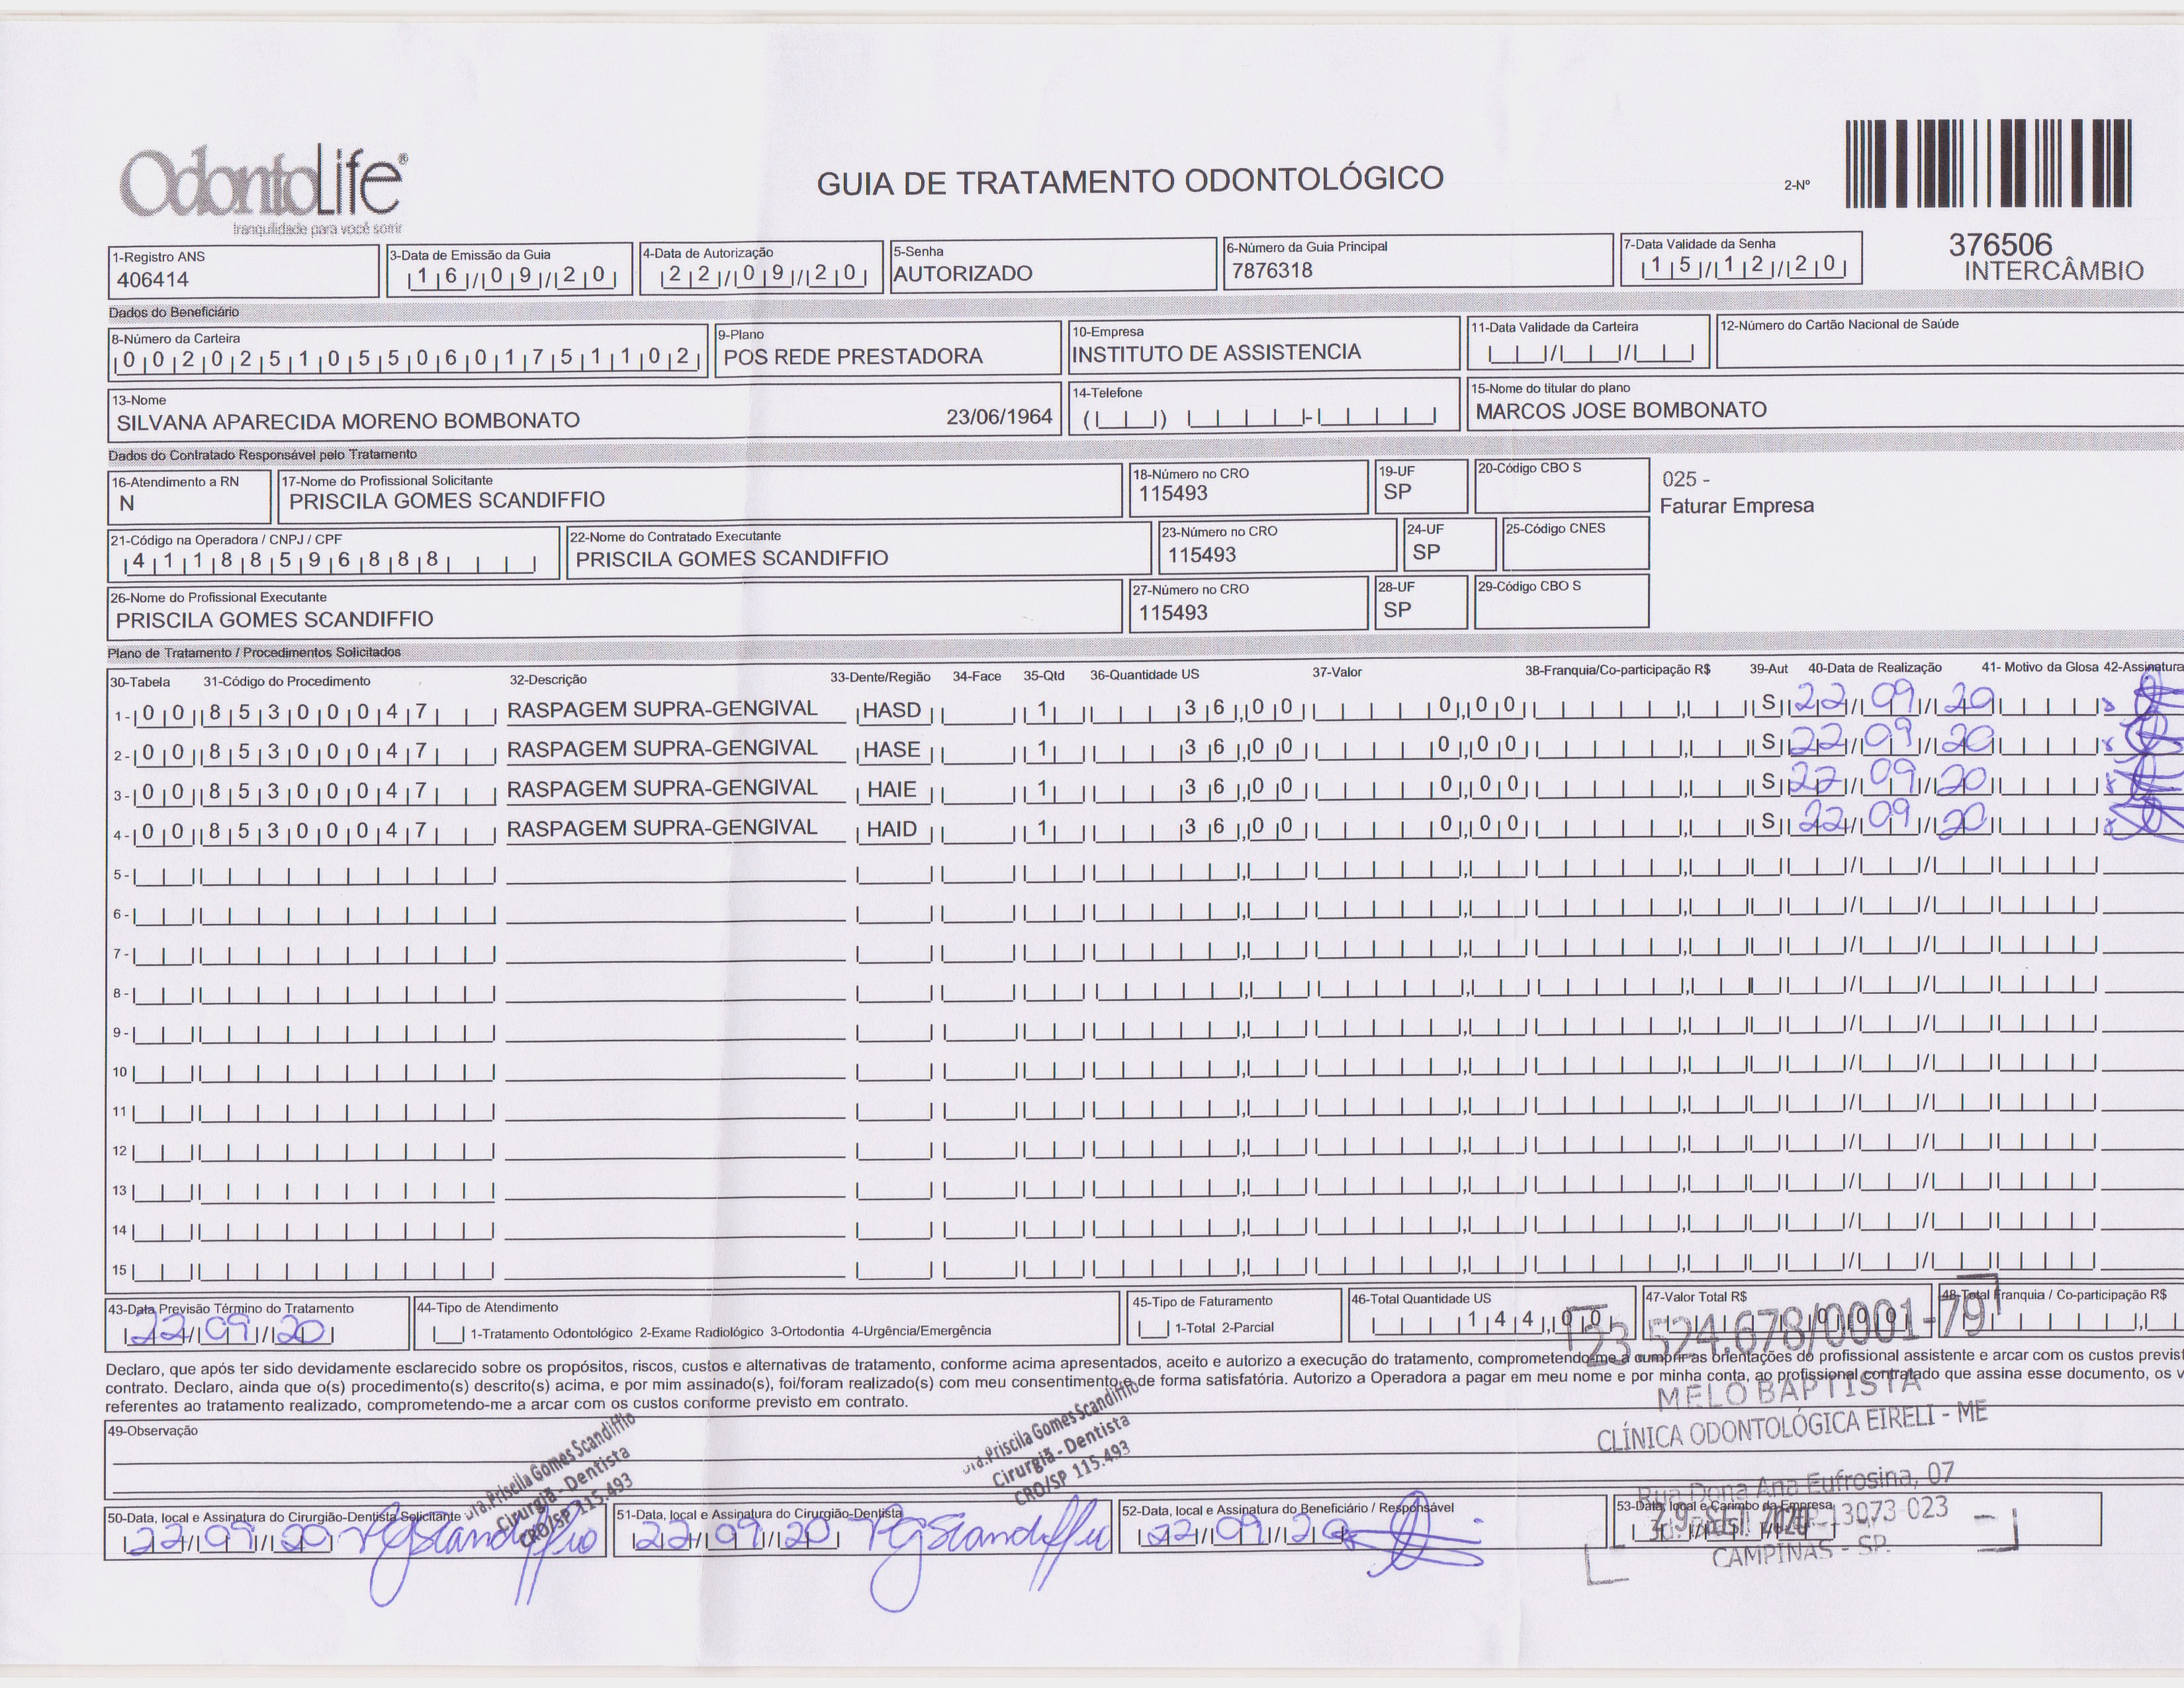 OdontoLife®
tranquilidade para você sorrir
GUIA DE TRATAMENTO ODONTOLÓGICO
2-Nº
376506
INTERCÂMBIO
1-Registro ANS
406414
3-Data de Emissão da Guia
16/09/20
4-Data de Autorização
22/09/20
5-Senha
AUTORIZADO
6-Número da Guia Principal
7876318
7-Data Validade da Senha
15/12/20
Dados do Beneficiário
8-Número da Carteira
00202510550601751102
9-Plano
POS REDE PRESTADORA
10-Empresa
INSTITUTO DE ASSISTENCIA
11-Data Validade da Carteira
12-Número do Cartão Nacional de Saúde
13-Nome
SILVANA APARECIDA MORENO BOMBONATO 23/06/1964
14-Telefone
15-Nome do titular do plano
MARCOS JOSE BOMBONATO
Dados do Contratado Responsável pelo Tratamento
16-Atendimento a RN
N
17-Nome do Profissional Solicitante
PRISCILA GOMES SCANDIFFIO
18-Número no CRO
115493
19-UF
SP
20-Código CBO S
025 -
Faturar Empresa
21-Código na Operadora / CNPJ / CPF
41188596888
22-Nome do Contratado Executante
PRISCILA GOMES SCANDIFFIO
23-Número no CRO
115493
24-UF
SP
25-Código CNES
26-Nome do Profissional Executante
PRISCILA GOMES SCANDIFFIO
27-Número no CRO
115493
28-UF
SP
29-Código CBO S
Plano de Tratamento / Procedimentos Solicitados
30-Tabela 31-Código do Procedimento 32-Descrição 33-Dente/Região 34-Face 35-Qtd 36-Quantidade US 37-Valor 38-Franquia/Co-participação R$ 39-Aut 40-Data de Realização 41- Motivo da Glosa 42-Assinatura
1- 00 85300047 RASPAGEM SUPRA-GENGIVAL HASD 1 36,00 0,00 S 22/09/20
2- 00 85300047 RASPAGEM SUPRA-GENGIVAL HASE 1 36,00 0,00 S 22/09/20
3- 00 85300047 RASPAGEM SUPRA-GENGIVAL HAIE 1 36,00 0,00 S 22/09/20
4- 00 85300047 RASPAGEM SUPRA-GENGIVAL HAID 1 36,00 0,00 S 22/09/20
5-
6-
7-
8-
9-
10
11
12
13
14
15
43-Data Previsão Término do Tratamento
22/09/20
44-Tipo de Atendimento
1-Tratamento Odontológico 2-Exame Radiológico 3-Ortodontia 4-Urgência/Emergência
45-Tipo de Faturamento
1-Total 2-Parcial
46-Total Quantidade US
144,00
47-Valor Total R$
0,00
48-Total Franquia / Co-participação R$
23.524.678/0001-79
Declaro, que após ter sido devidamente esclarecido sobre os propósitos, riscos, custos e alternativas de tratamento, conforme acima apresentados, aceito e autorizo a execução do tratamento, comprometendo-me a cumprir as orientações do profissional assistente e arcar com os custos
contrato. Declaro, ainda que o(s) procedimento(s) descrito(s) acima, e por mim assinado(s), foi/foram realizado(s) com meu consentimento e de forma satisfatória. Autorizo a Operadora a pagar em meu nome e por minha conta, ao profissional contratado que assina esse documento, os
referentes ao tratamento realizado, comprometendo-me a arcar com os custos conforme previsto em contrato.
MELO BAPTISTA
CLÍNICA ODONTOLÓGICA EIRELI - ME
Rua Dona Ana Eufrosina, 07
13073-023
CAMPINAS - SP.
49-Observação
Dra. Priscila Gomes Scandiffio
Cirurgiã - Dentista
CRO/SP 115.493
Dra. Priscila Gomes Scandiffio
Cirurgiã - Dentista
CRO/SP 115.493
50-Data, local e Assinatura do Cirurgião-Dentista Solicitante
22/09/20 PGScandiffio
51-Data, local e Assinatura do Cirurgião-Dentista
22/09/20 PGScandiffio
52-Data, local e Assinatura do Beneficiário / Responsável
22/09/20
53-Data, local e Carimbo da Empresa
29 SET. 2020